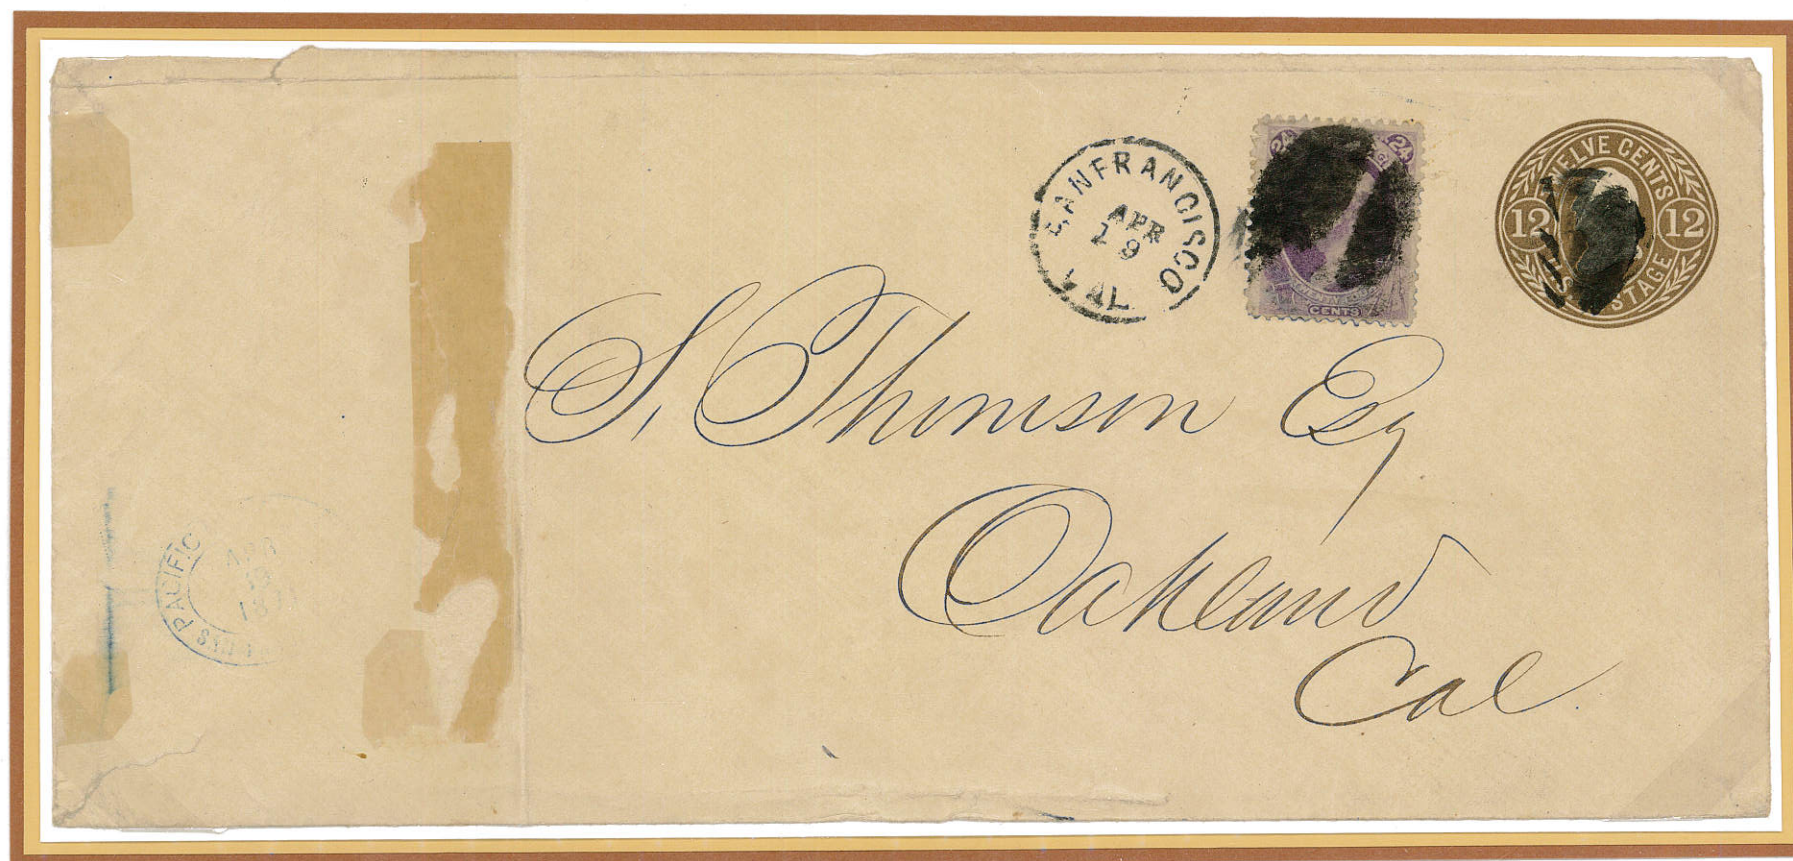 SAN FRANCISCO
APR
19
CAL.
24 24
CENTS
TWELVE CENTS
12 12
POSTAGE
S. Thomson Esq
Oakland
Cal.
PACIFIC
APR